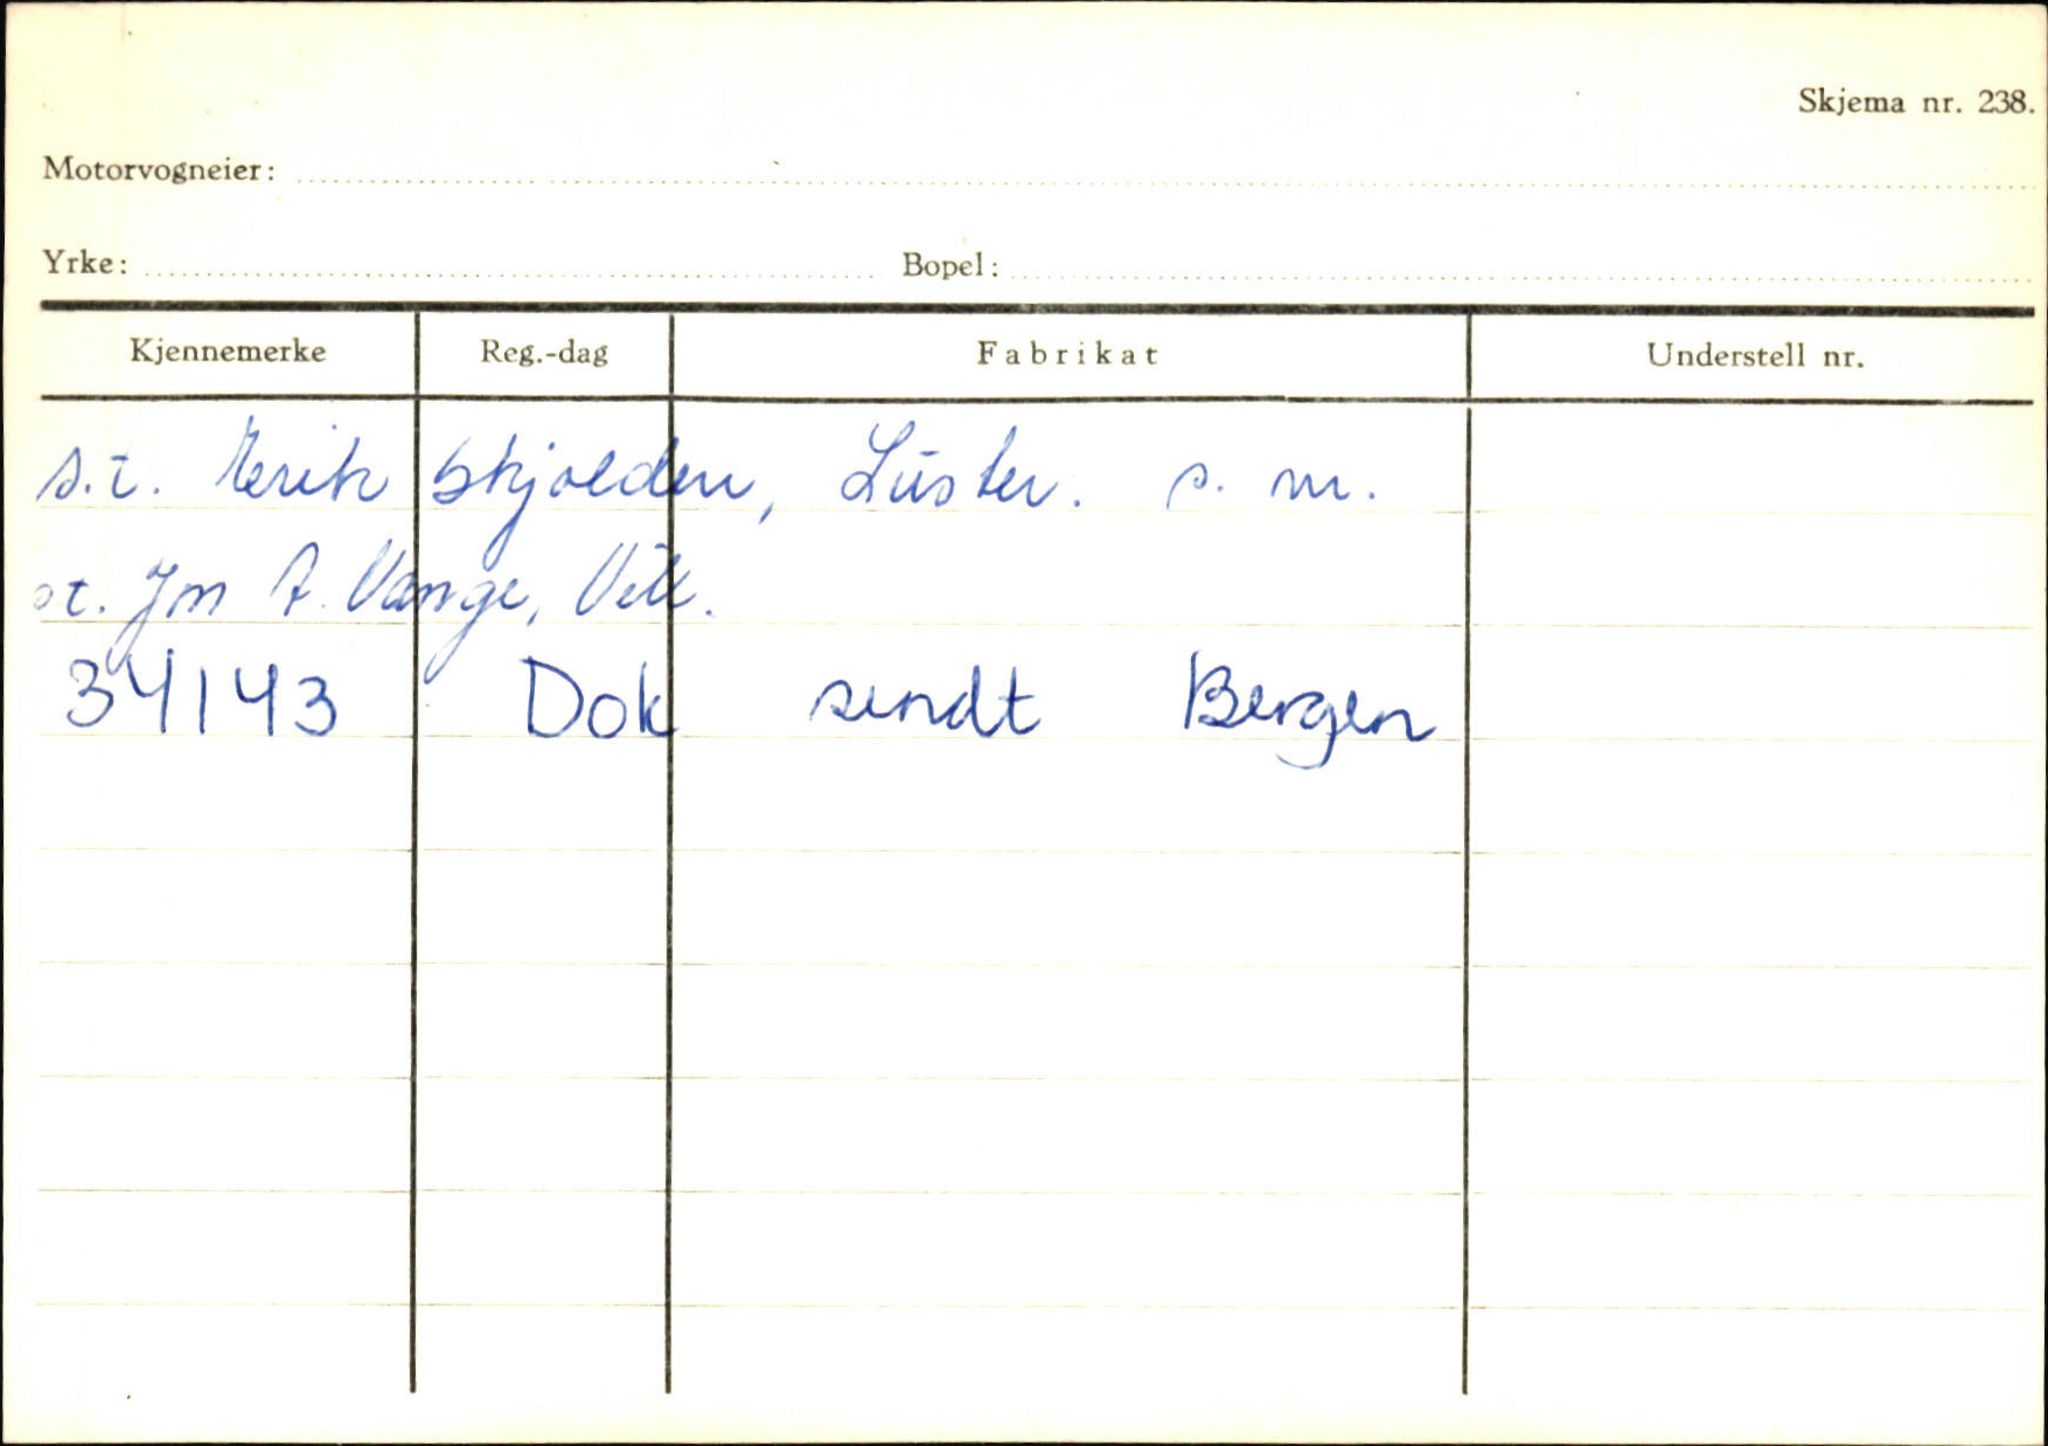 Skjema nr. 238.
Motorvogneier:
Yrke: Bopel:
Kjennemerke Reg.-dag Fabrikat Understell nr.
s.t. Eerik Skjolden, Luster. s. nr.
st. Jon A. Vange, Vik.
34143 Dok sendt Bergen